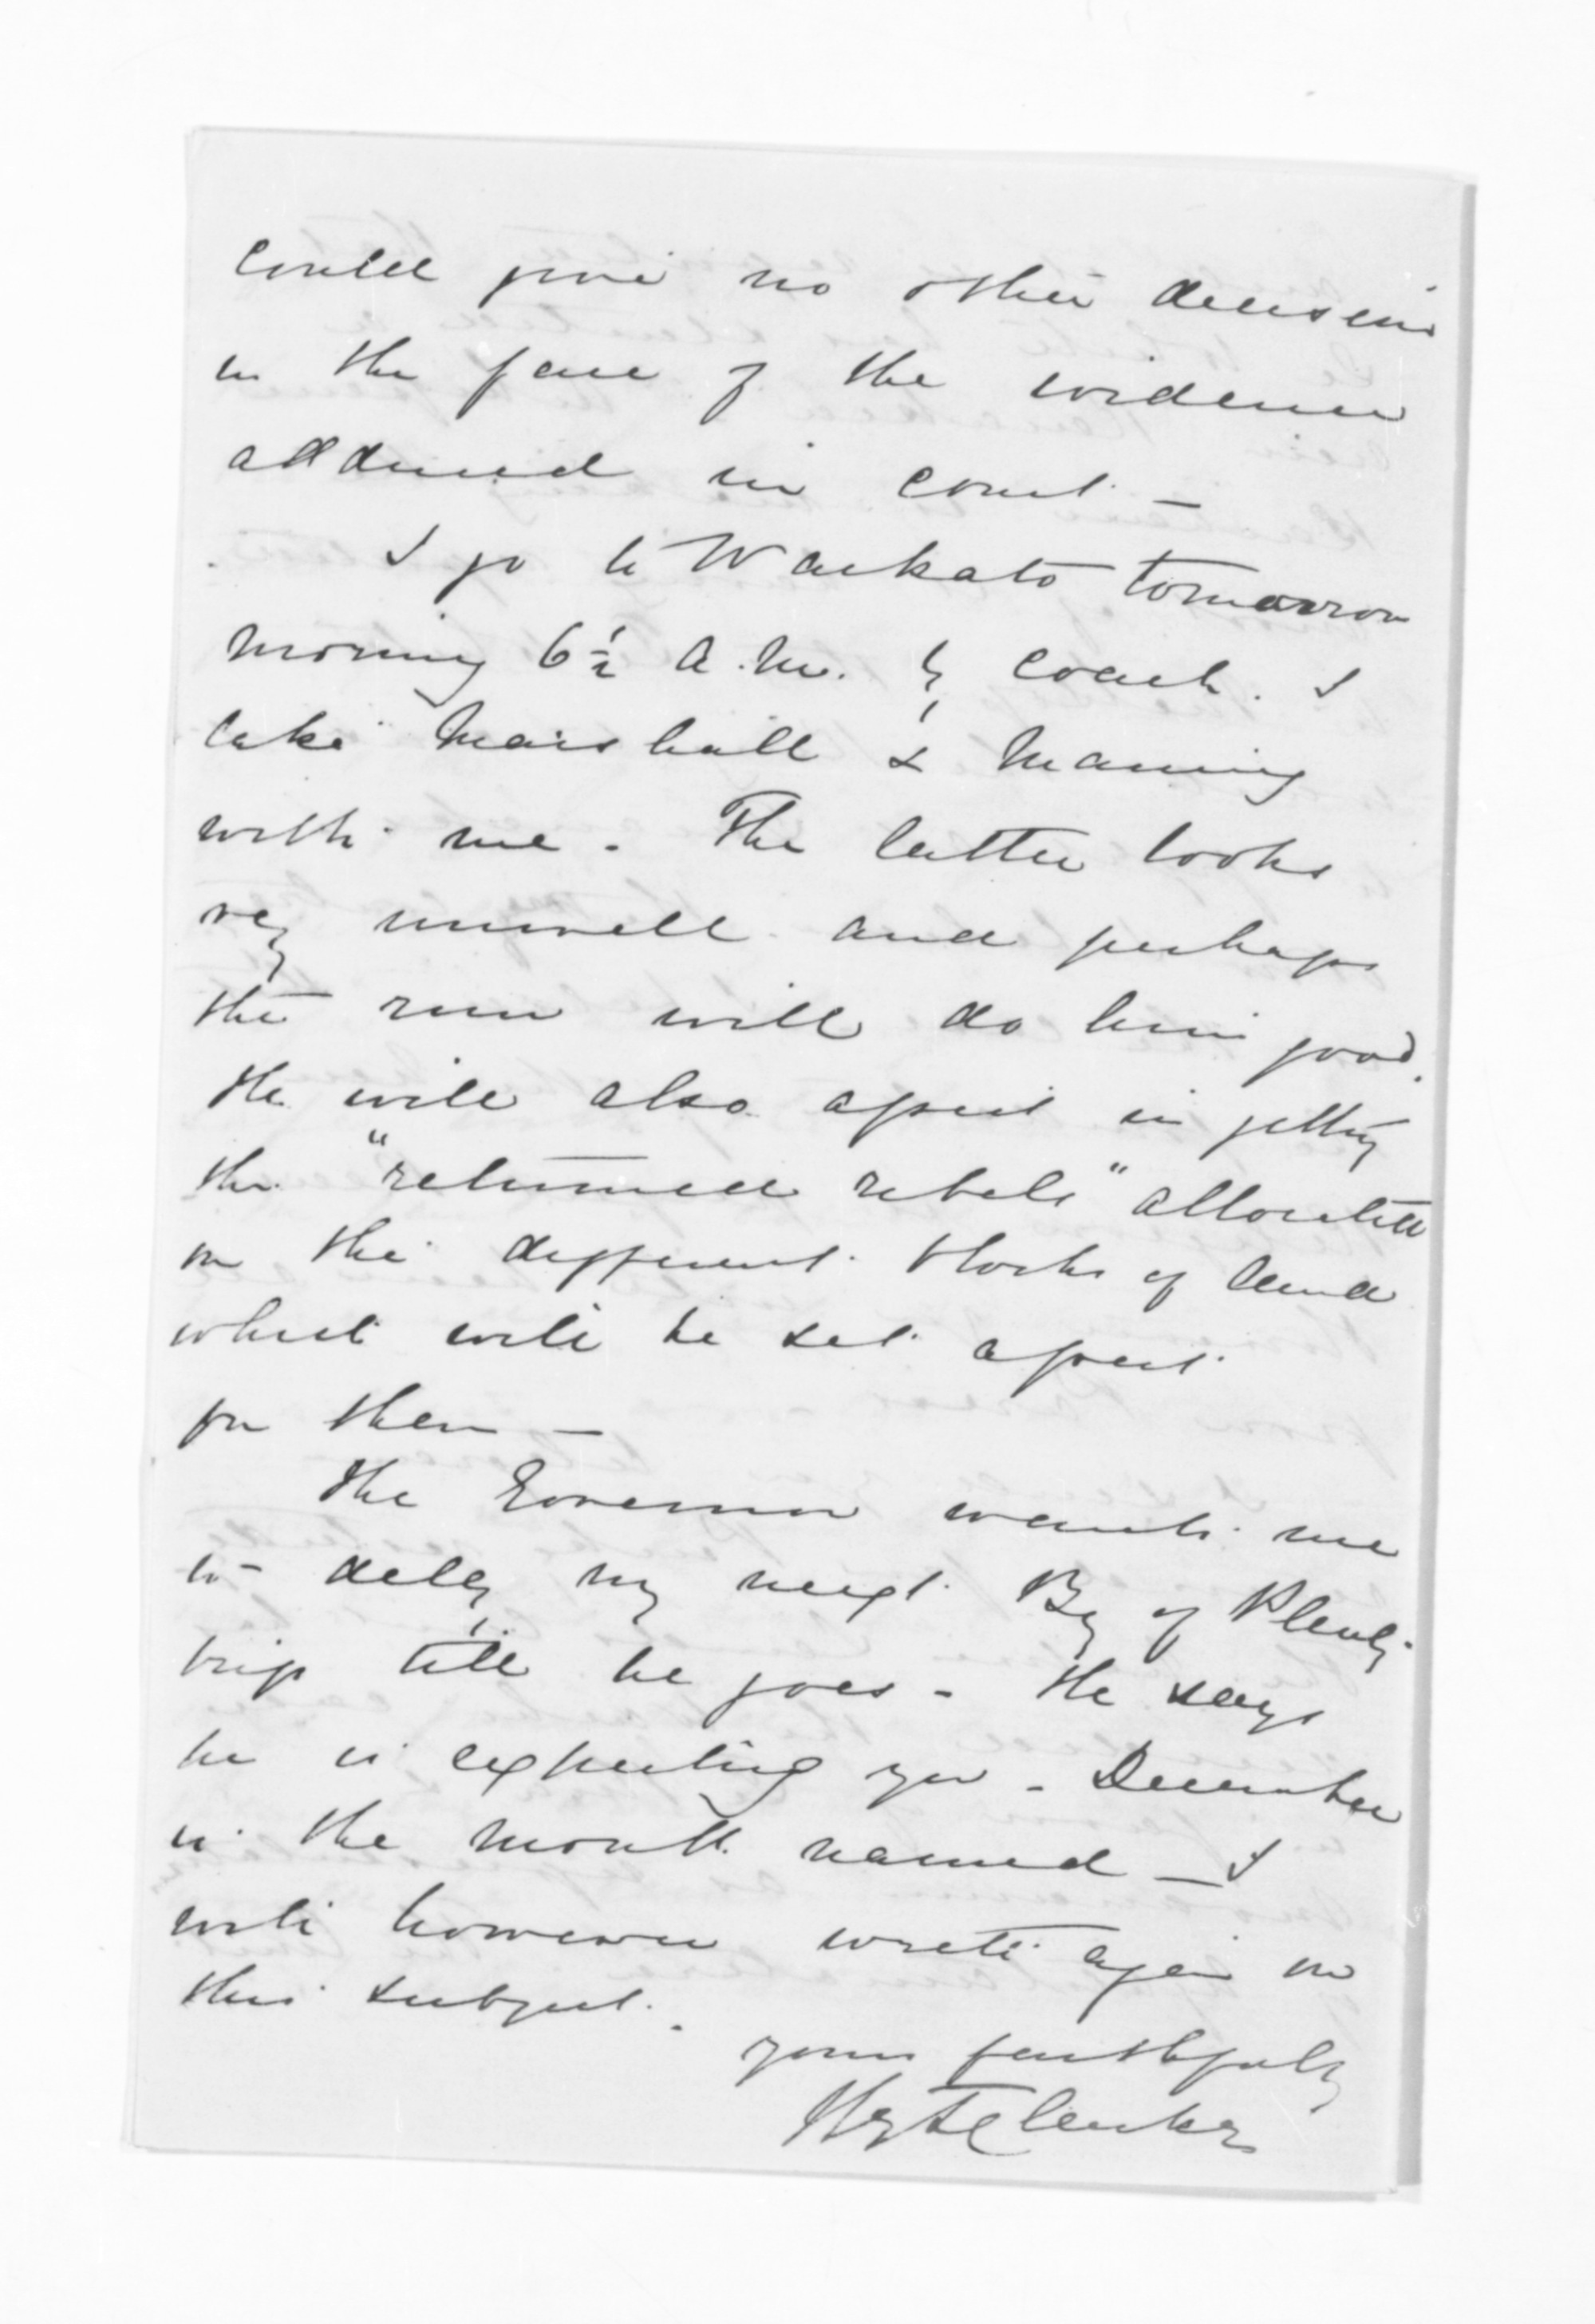 could give no other decision
in the face of the evidence
adduced in Court —
I go to Waikato tomorrow
morning 6½ A.M. by coach. I
take Marshall & Maning
with me. The latter looks
very unwell and perhaps
the run will do him good.
He will also assist in getting
the "returned rebels" allocated
on the different blocks of land
which will be set apart
for them —
The Governor wants me
to delay my next Bay of Plenty
trip till he goes - He says
he is expecting you - December
is the month named — I
will however write again on
this subject.
yours faithfully
Hy T Clarke